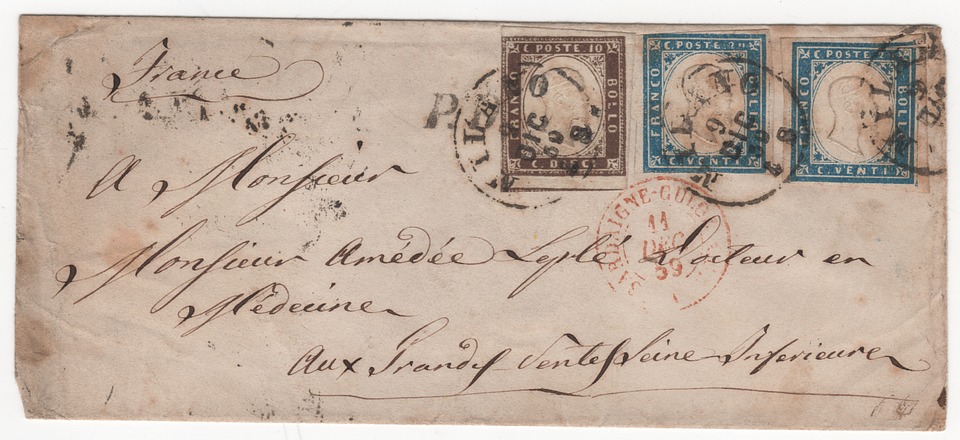 C. POSTE 10
FRANCO
BOLLO
C. DIECI
C. POSTE 20
FRANCO
BOLLO
C. VENTI
C. POSTE
FRANCO
BOLLO
C. VENTI
MILANO
9
DIC
59
France
P.
SARDAIGNE-CULOZ
11
DEC
59
A Monsieur
Monsieur Amédée Leplé Docteur en
Médecine
Aux Grandes Ventes Seine Inferieure